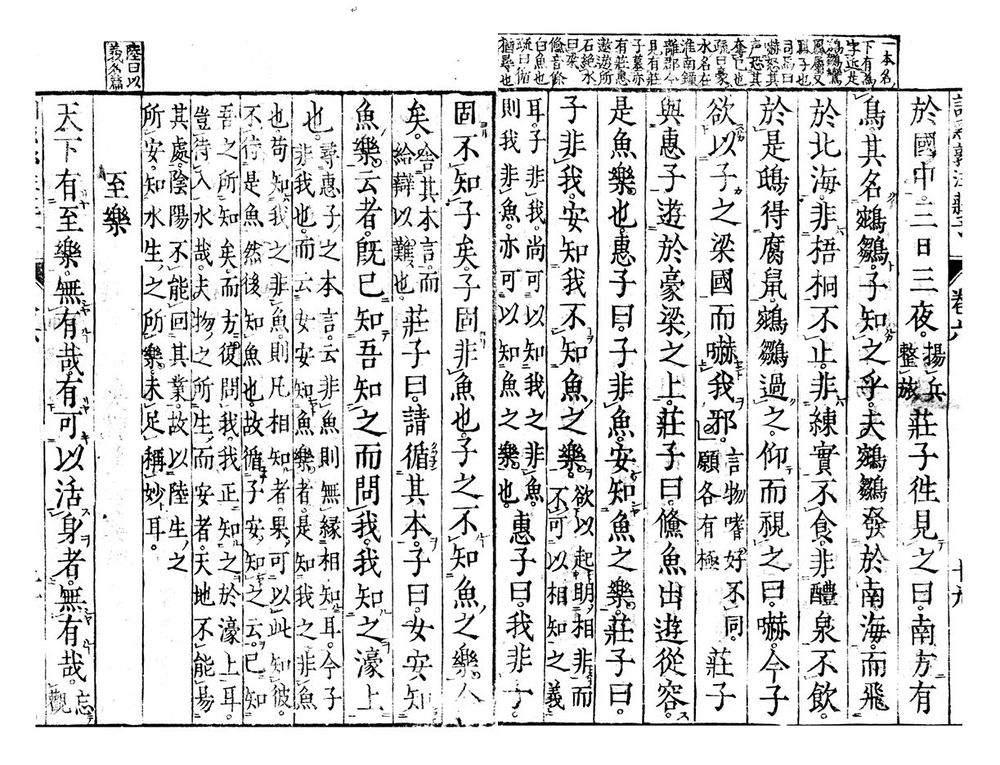 卷六
十九
一本名
下有為
字近是
鵷鶵鸞
鳳屬又
司馬曰
嚇怒其
声恐其
奪己也
疏曰豪
水名在
淮南鐘
離郡今
見有莊
子墓亦
有莊惠
遨遊所
石絶水
曰梁
白魚也
疏曰循
猶尋也
於國中。三日三夜。揚兵整旅莊子徃見之曰。南方有
鳥。其名鵷鶵。子知之乎。夫鵷鶵發於南海。而飛
於北海。非梧桐不止。非練實不食。非醴泉不飲。
於是鴟得腐鼠。鵷鶵過之。仰而視之曰。嚇。今子
欲以子之梁國而嚇我邪。言物嗜好不同。願各有極莊子
與惠子遊於豪梁之上。莊子曰。儵魚出遊從容。
是魚樂也。惠子曰。子非魚。安知魚之樂。莊子曰。
子非我。安知我不知魚之樂。欲以起明相非而不可以相知之義
耳。子非我。尚可以知我之非魚。則我非魚。亦可以知魚之樂也。惠子曰。我非子。
固不知子矣。子固非魚也。子之不知魚之樂。全
矣。舍其本言而給辯以難也。莊子曰。請循其本。子曰。女安知
魚樂云者。既已知吾知之而問我。我知之濠上
也。尋惠子之本言。云非魚則無緣相知耳。今子非我也。而云女安知魚樂者。是知我之非魚
也。苟知我之非魚。則凡相知者。果可以此知彼。不待是魚。然後知魚也。故循子安知之云。已知
吾之所知矣。而方復問我。我正知之於濠上耳。豈待入水哉。夫物之所生。而安者。天地不能易
其處。陰陽不能回其業。故以陸生之所安。知水生之所樂。未足稱妙耳。
陸曰以
義名篇
至樂
天下有至樂。無有哉。有可以活身者。無有哉。忘觀